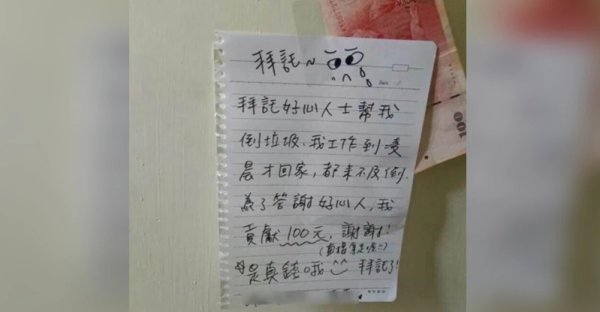 拜託~
拜託好心人士幫我
倒垃圾、我工作到凌
晨才回家，都來不及倒.
為了答謝好心人，我
貢獻100元，謝謝!
是真錢哦 拜託了!
100